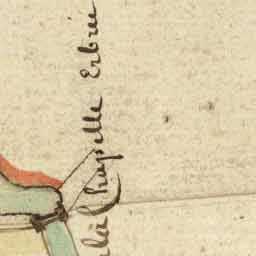 à la Chapelle Erbrée